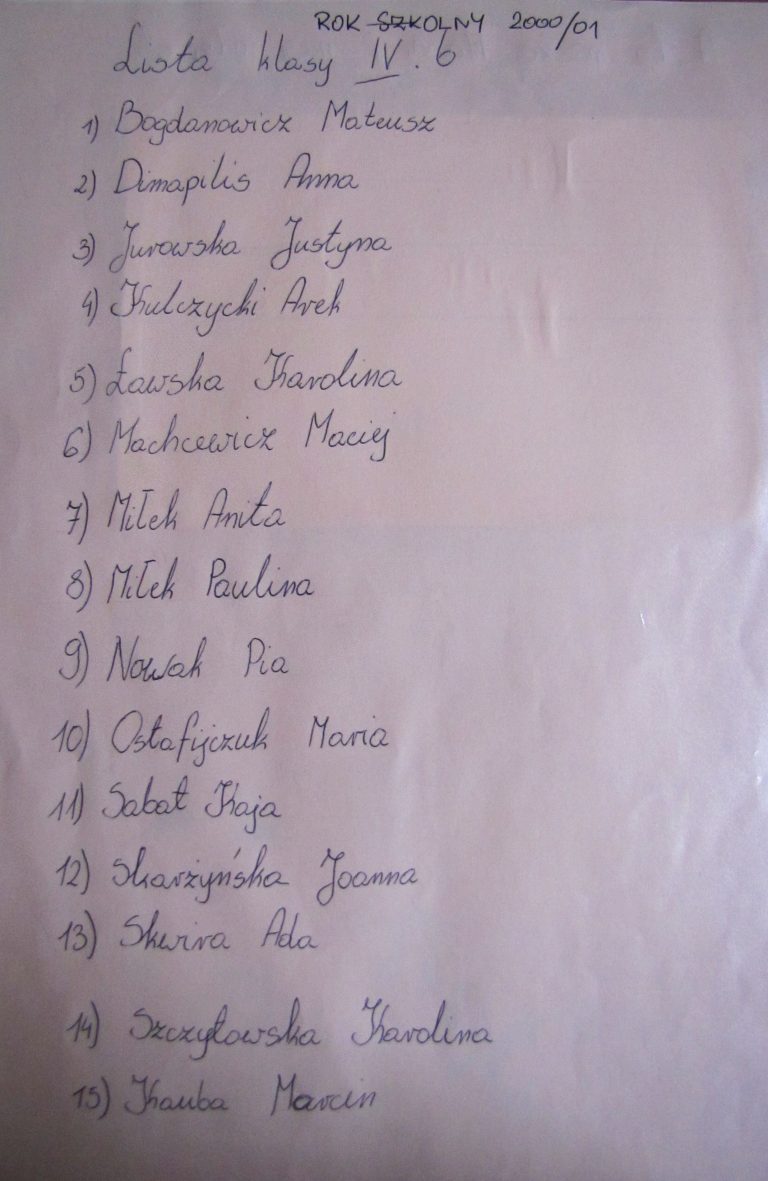 ROK SZKOLNY 2000/01
Lista klasy IV. b
1) Bogdanowicz Mateusz
2) Dimapilis Anna
3) Jurowska Justyna
4) Kulczycki Arek
5) Ławska Karolina
6) Machcewicz Maciej
7) Miłek Anita
8) Miłek Paulina
9) Nowak Pia
10) Ostafijczuk Maria
11) Sabat Kaja
12) Skarżyńska Joanna
13) Skwira Ada
14) Szczytowska Karolina
15) Kauba Marcin